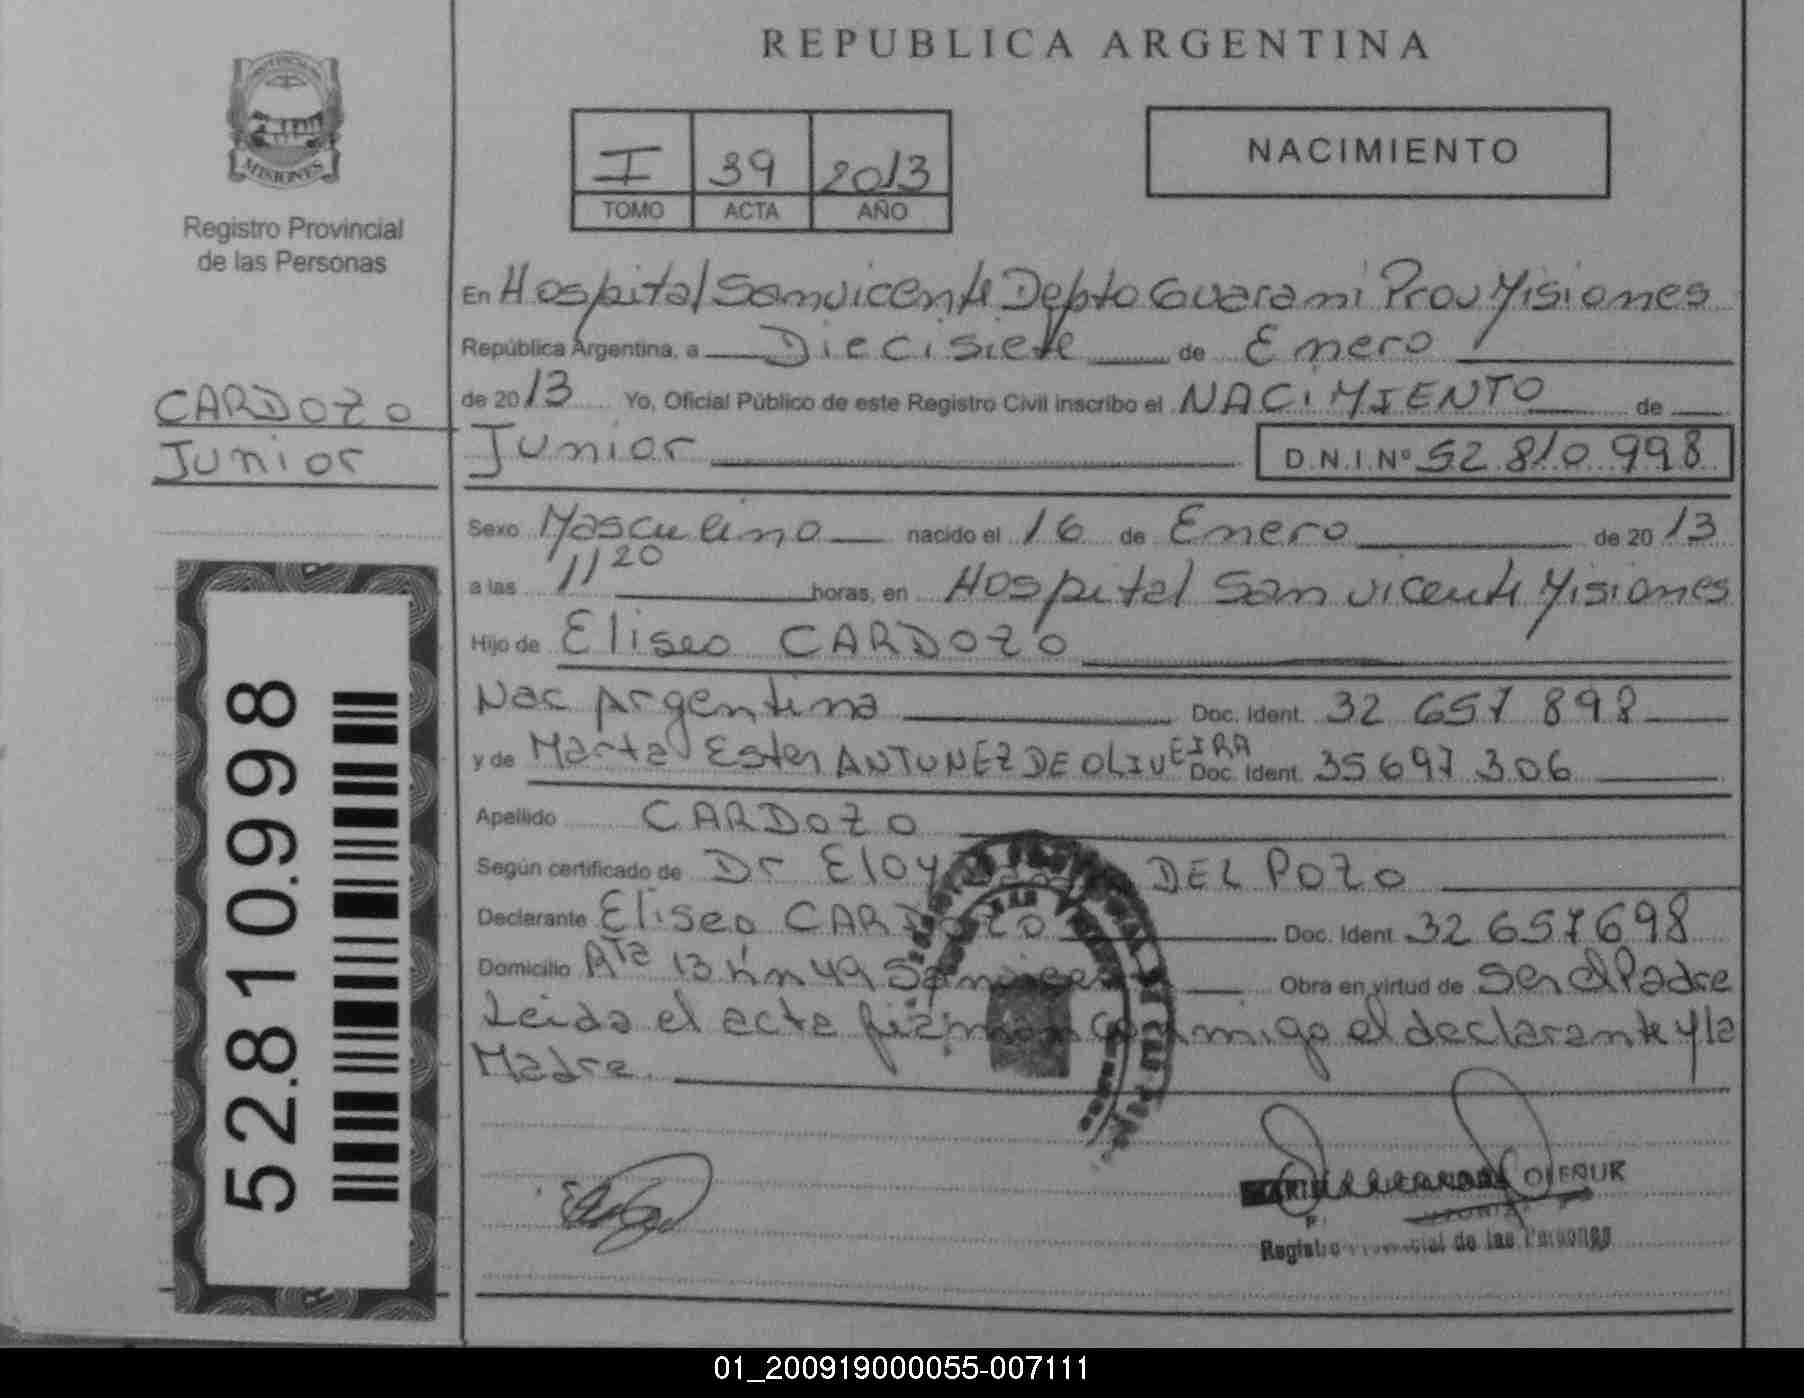 REPUBLICA ARGENTINA
MISIONES
Registro Provincial
de las Personas
I 39 2013
TOMO ACTA AÑO
NACIMIENTO
CARDOZO
Junior
52.810.998
En Hospital San vicente Depto Guarani Prov Misiones
República Argentina, a Diecisiete de Enero
de 2013 Yo, Oficial Público de este Registro Civil inscribo el NACIMIENTO de
Junior D.N.I.Nº 52 810 998
Sexo Masculino nacido el 16 de Enero de 2013
a las 11 20 horas, en Hospital San vicente Misiones
Hijo de Eliseo CARDOZO
Nac Argentina Doc. Ident. 32 657 898
y de Marta Ester ANTUNEZ DE OLIVEIRA Doc. Ident. 35 697 306
Apellido CARDOZO
Según certificado de Dr Eloy DEL POZO
Declarante Eliseo CARDOZO Doc. Ident. 32 657 698
Domicilio Rta 13 km 49 San Vicente Obra en virtud de Ser el Padre
Leida el acta firman conmigo el declarante y la
Madre.
OLENUK
Registro Provincial de las Personas
01_200919000055-007111